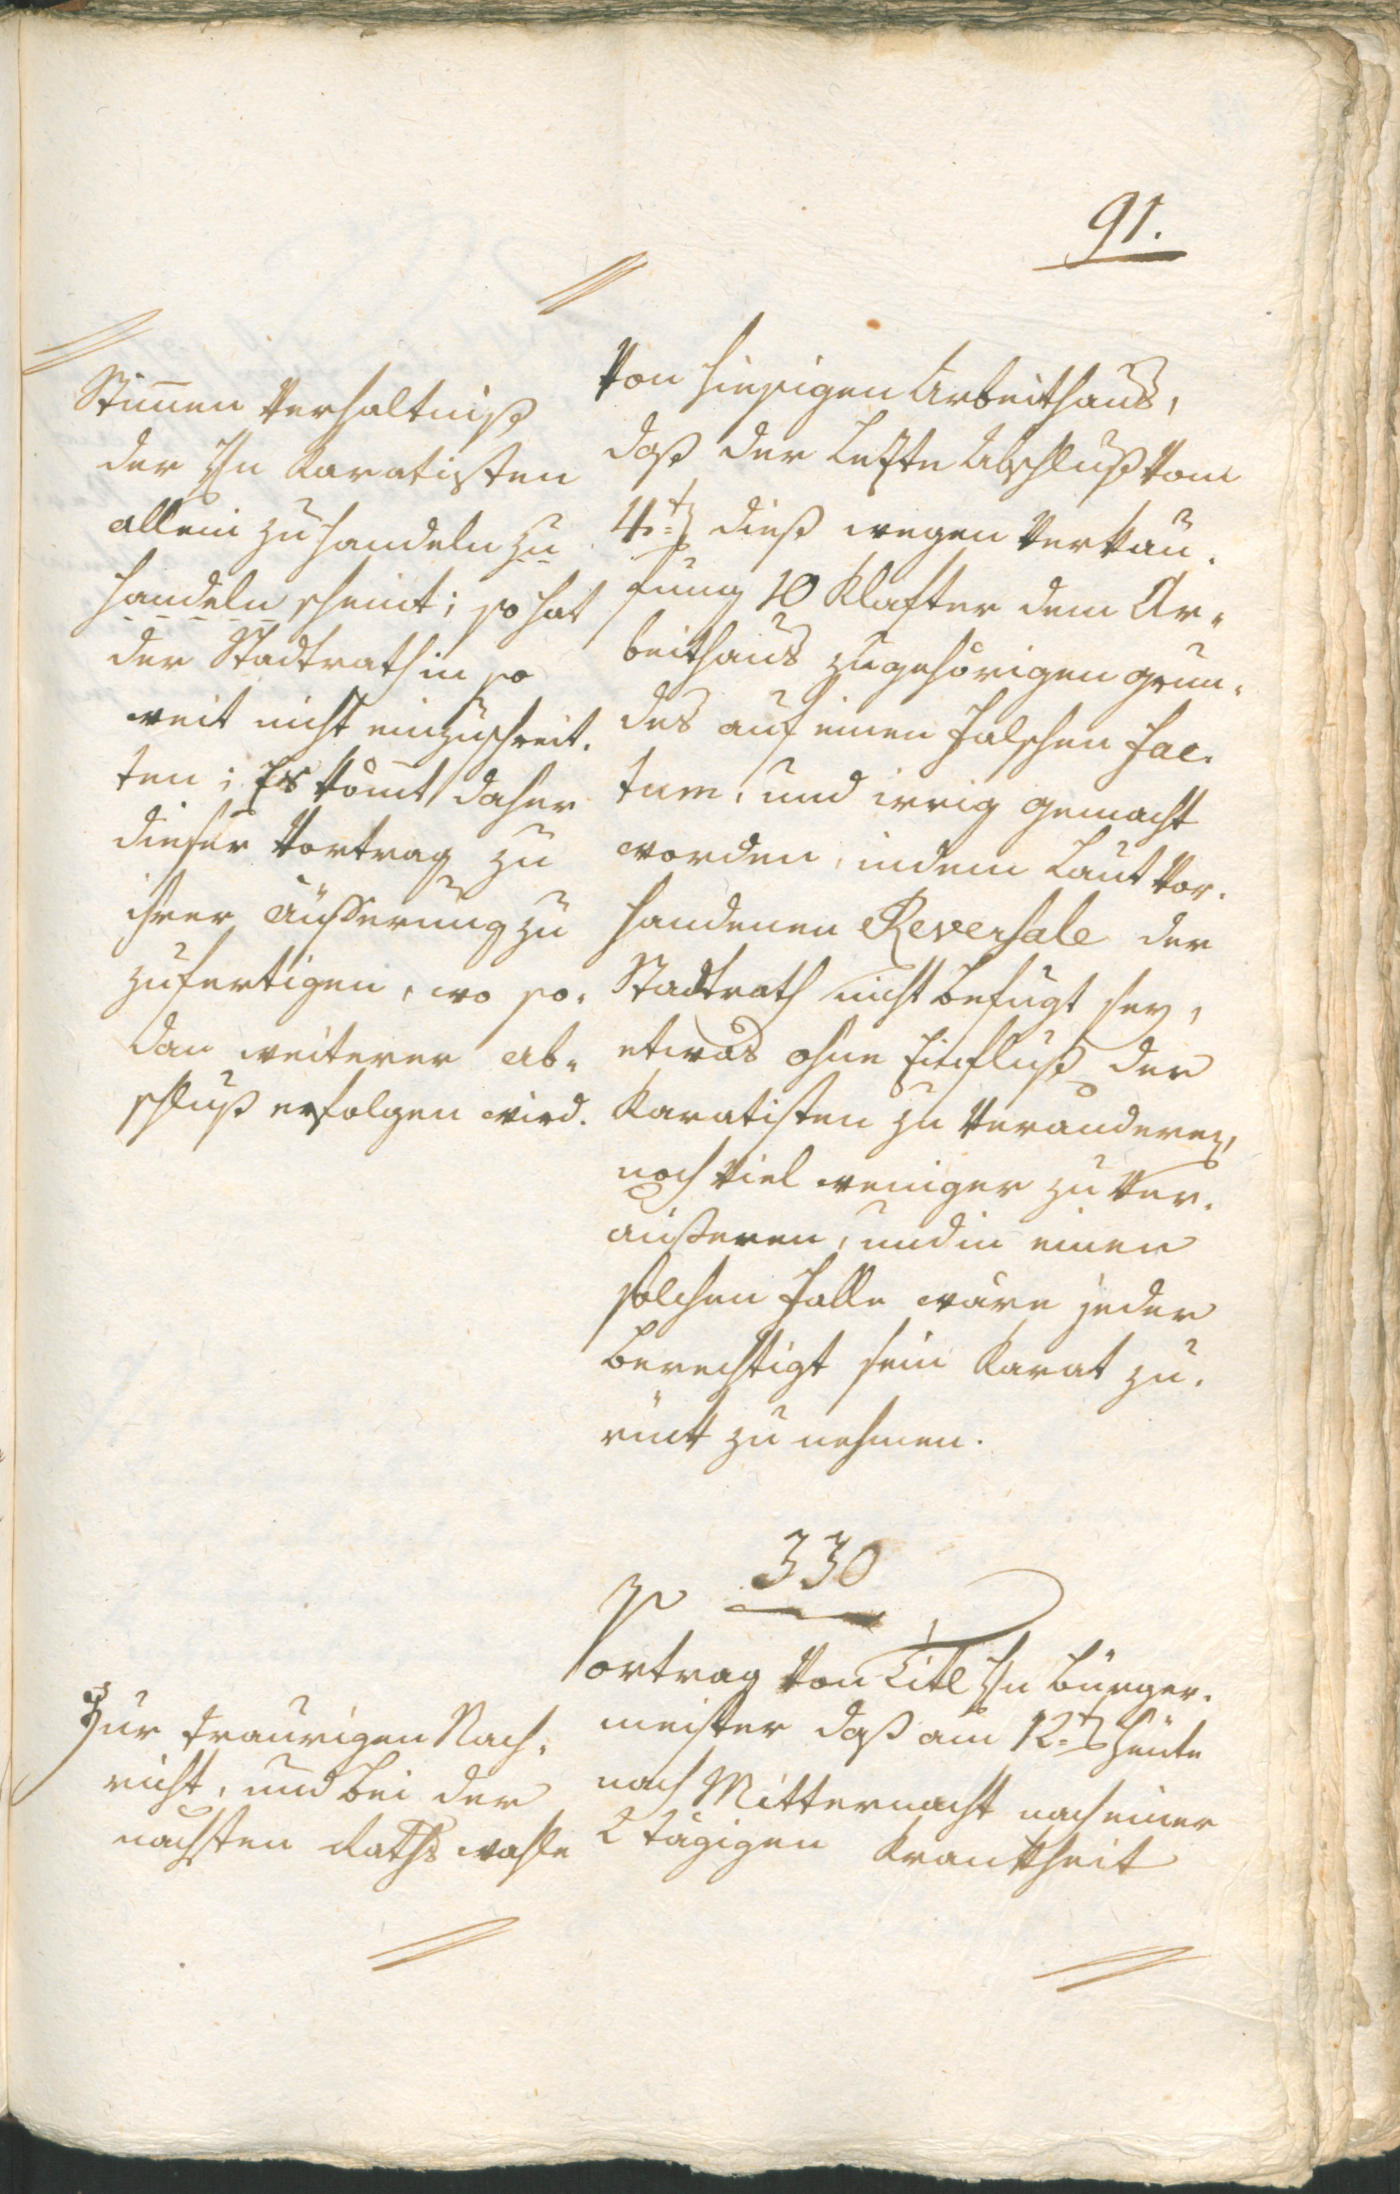 91.
Stimmen Verhaltniß
der Hn Karatisten
allein zu handeln zu
handeln scheint; so hat
der Stadtrath in so
weit nicht einzuschreit.
ten; Es kömt daher
dieser Vortrag zu
ihrer äusserung zu
zufertigen, wo so.
dan weiterer Ab-
schluß erfolgen wird.
von hiesigen Arbeithaus,
daß der Letzte Abschluß vom
4t dieß wegen Verkau.
fung 10 Klafter dem Ar-
beithaus zugehörigen grun-
des auf einen falschen fac.
tum, und irrig gemacht
worden, indem Laut vor.
handenen Reversale der
Stadtrath nicht befugt sey,
etwas ohne Einfluß der
Karatisten zu veranderen,
noch viel weniger zu ver.
äußeren, und in einen
solchen falle wäre jeder
berechtigt sein Karat zu.
rück zu nehmen.
330
Vortrag von Titl Hn bürger.
meister daß am 12t heute
nach Mitternacht nach einer
2 tägigen Krankheit
Zur traurigen Nach.
richt, und bei der
nachsten Raths wahle